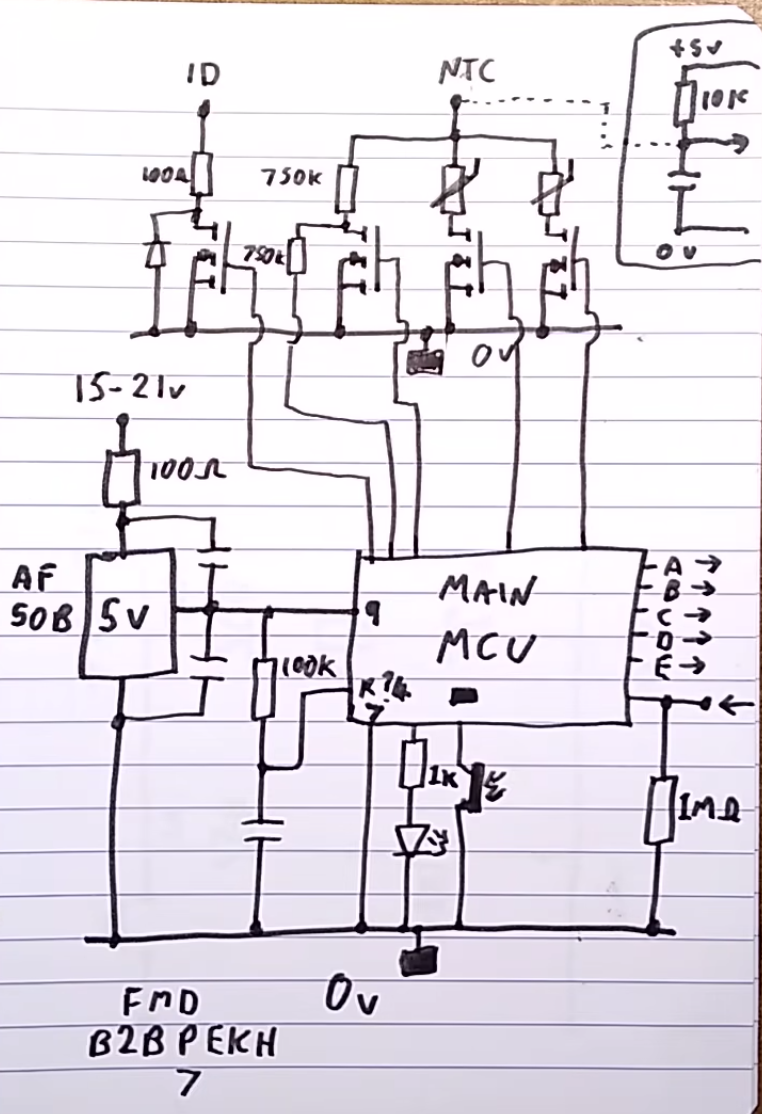 1D
NTC
+5v
10K
100Ω
750K
750k
0v
0v
15-21v
100Ω
AF
50B
5v
MAIN
MCU
9
A →
B →
C →
D →
E →
100K
R?4
7
1K
1MΩ
0v
FMD
B2BPEKH
7